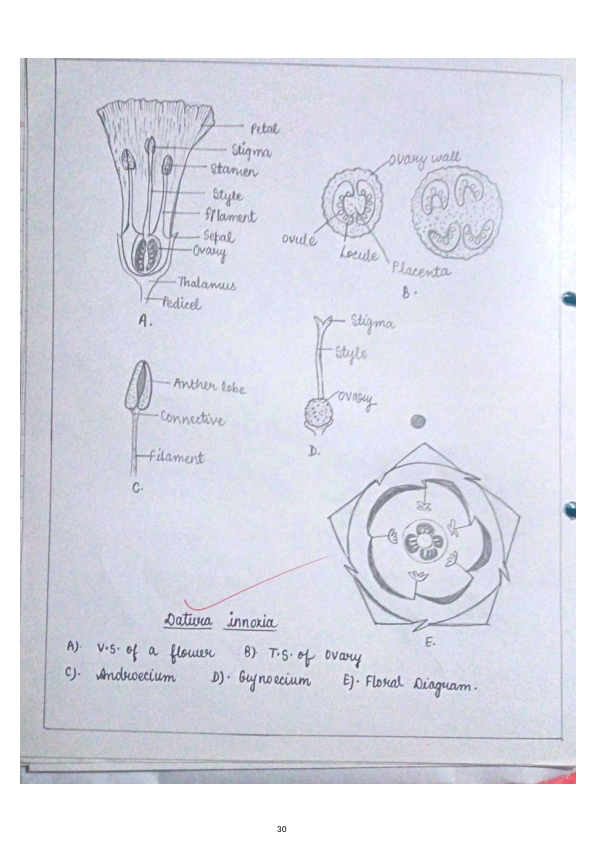 Petal
Stigma
Stamen
Style
filament
Sepal
Ovary
Thalamus
Pedicel
A.
Ovary wall
ovule
Locule
Placenta
B.
Anther lobe
Connective
filament
C.
Stigma
Style
Ovary
D.
E.
Datura innoxia
A). V.S. of a flower B) T.S. of ovary
C). Androecium D). Gynoecium E). Floral Diagram.
30